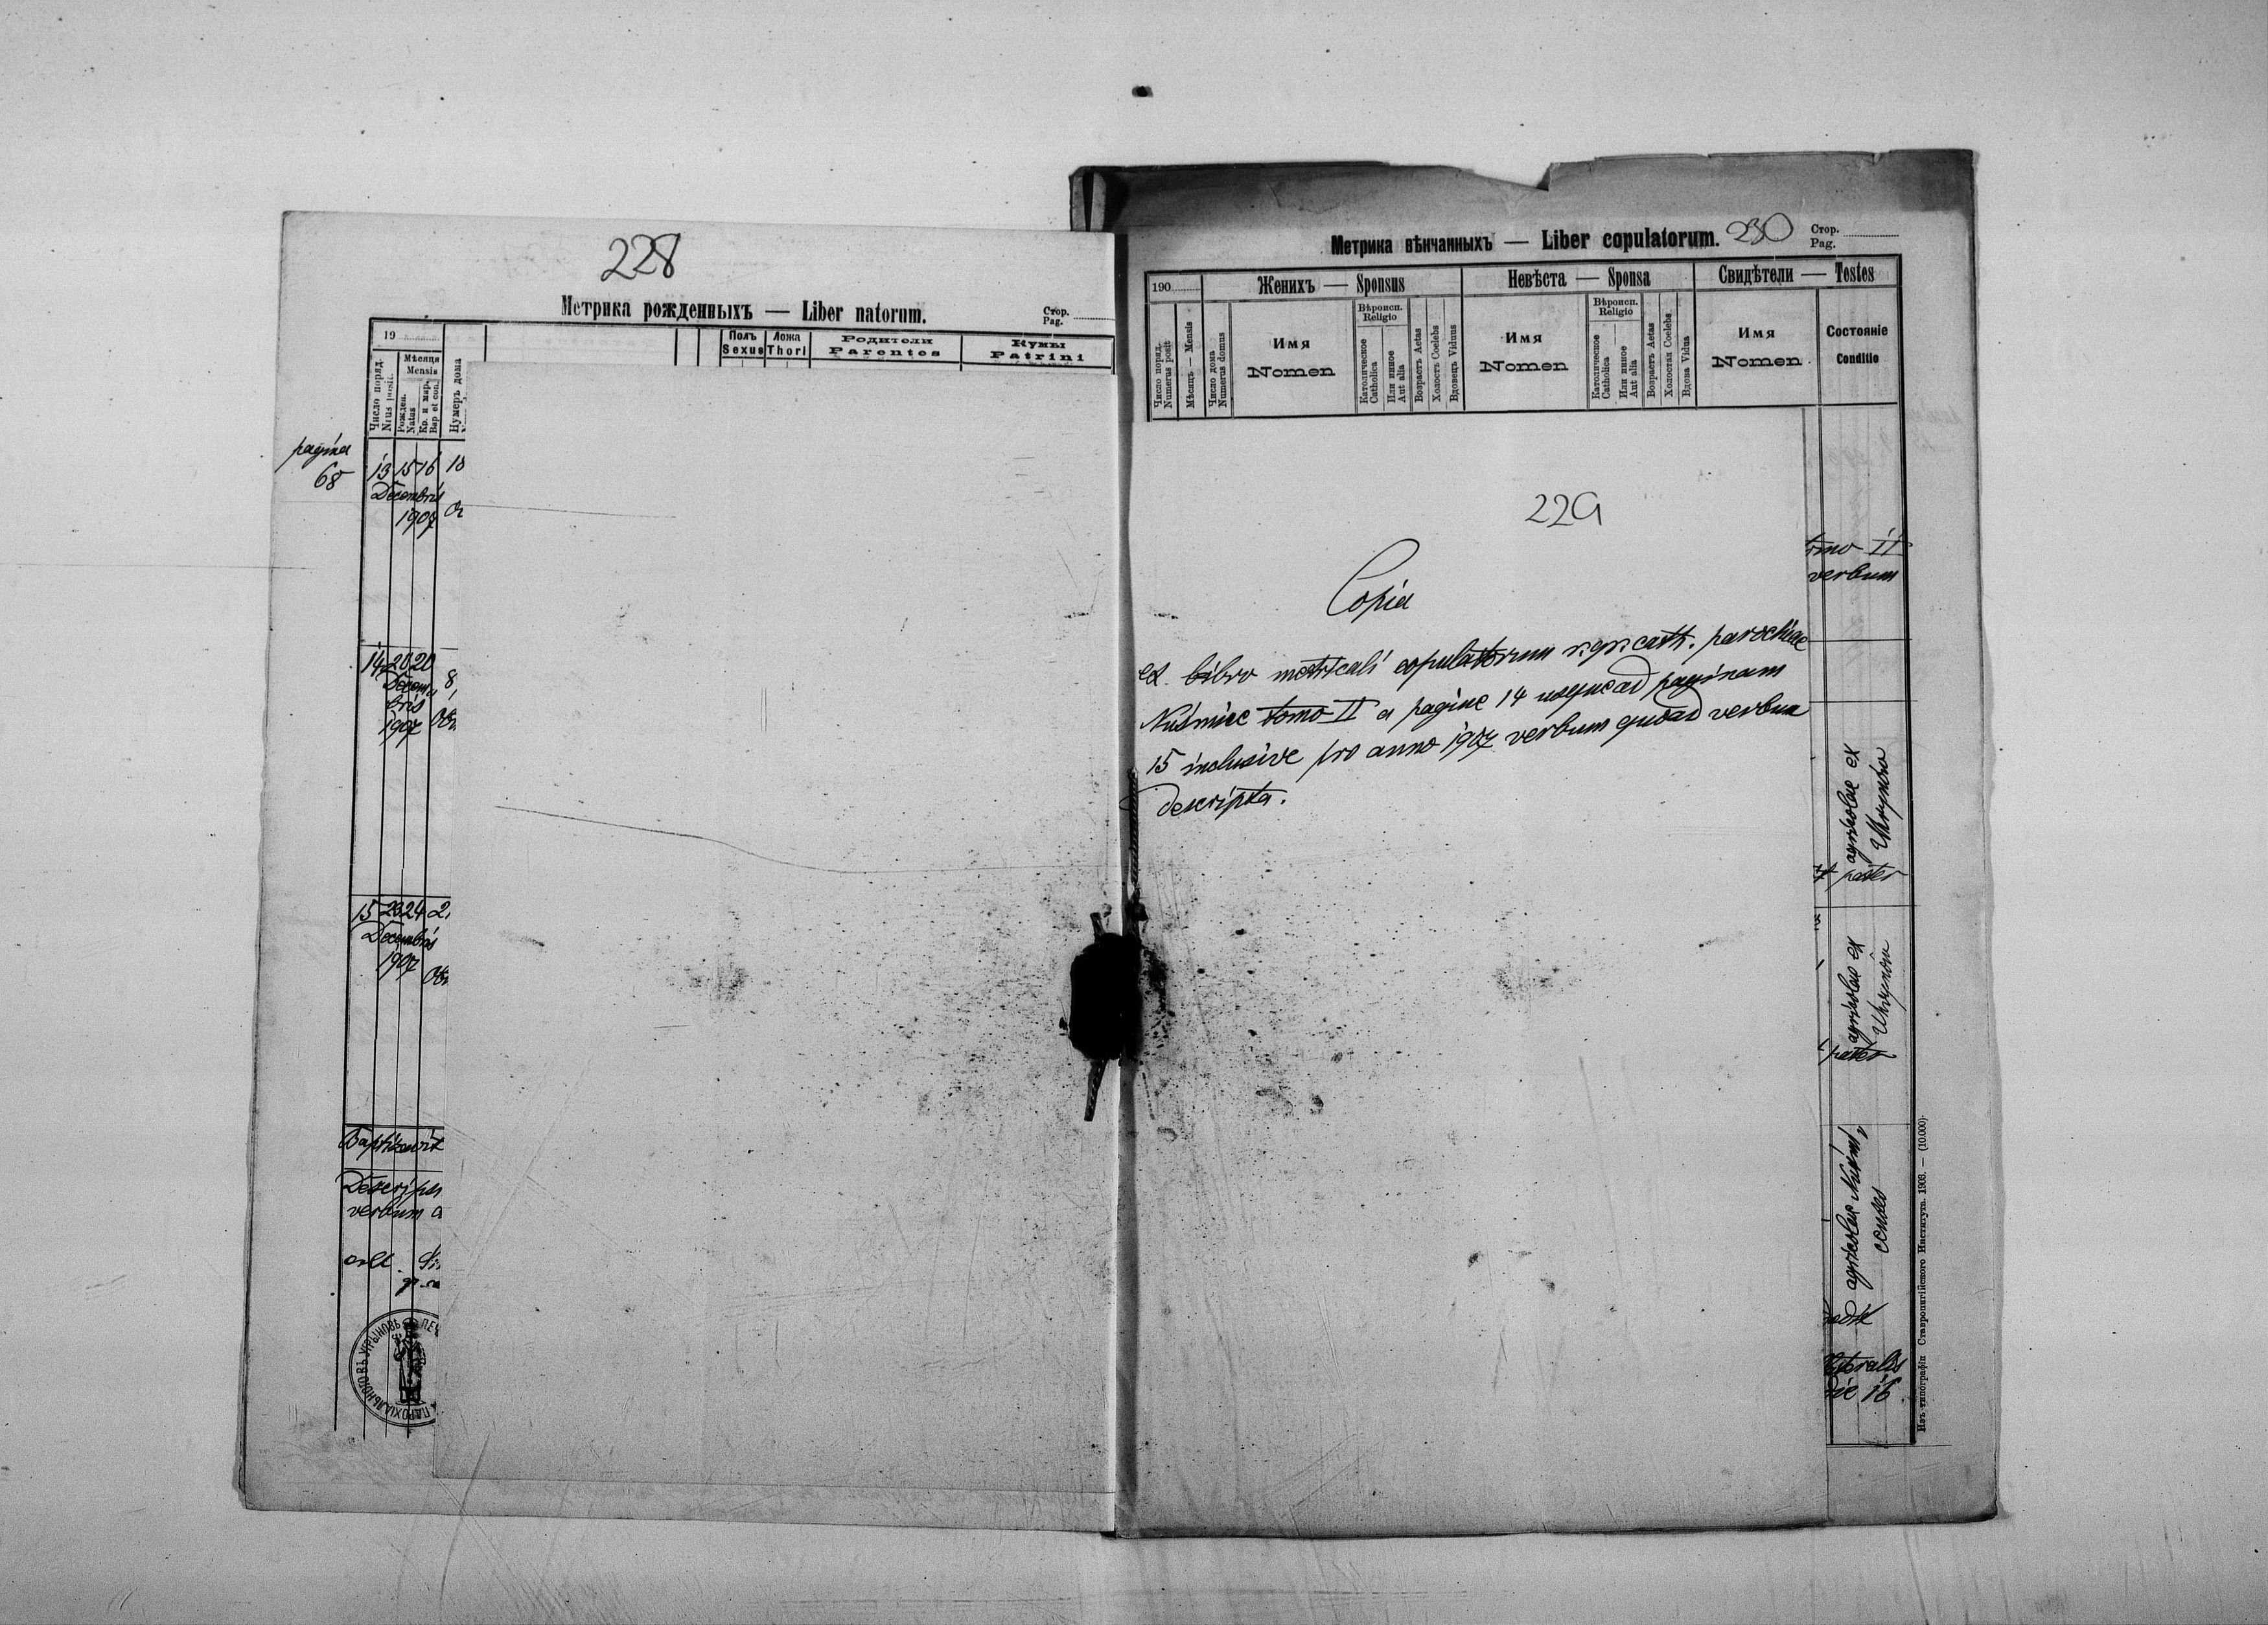 228
Метрика рожденныхъ — Liber natorum.
Стор.
Pag.
19
Мѣсяця
Mensis
Число поряд.
Nrus posit.
Рожден.
Natus
Кр. и мѵр.
Bap et con.
Нумеръ дома
Полъ
Sexus
Ложа
Thori
Родители
Parentes
Кумы
Patrini
pagina
68
13 15 16 10
Decembris
1907
14 20 20
Decem
bris
1907
8
15 23 24 2
Decembris
1907
Baptizavit
verbum a
ПАРОХІАЛЬНОГО ВЪ УГРЫНОВЪ
Метрика вѣнчанныхъ — Liber copulatorum.
230
Стор.
Pag.
190
Женихъ — Sponsus
Невѣста — Sponsa
Свидѣтели — Testes
Число поряд.
Numerus posit
Мѣсяцъ — Mensis
Число дома
Numerus domus
Имя
Nomen
Вѣроисп.
Religio
Католическое
Catholica
Или инное
Aut alia
Возрастъ Aetas
Холостъ Coelebs
Вдовецъ Viduus
Имя
Nomen
Вѣроисп.
Religio
Католическое
Catholica
Или инное
Aut alia
Возрастъ Aetas
Холостая Coelebs
Вдова Vidua
Имя
Nomen
Состояніе
Conditio
229
Copia
ex libro metricali copulatorum r. gr. cath. parochiae
Nuśmice tomo II a paginae 14 usque ad paginam
15 inclusive pro anno 1907 verbum quoad verbum
descripta.
tomo II
verbum
agricolae ex
Uhrynów
pater
agricolae ex
Uhrynów
pater
agricolae Nuśmi,
censes
die 16
Изъ типографіи Ставропигійского Института. 1908. — (10.000).